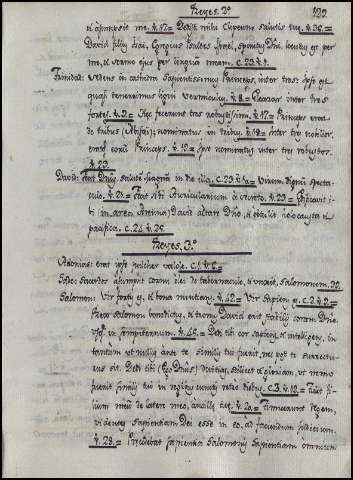 Reyes 2.º 122
et assumpsit me. v. 17.= Dedisti mihi Clypeum salutis tuę. v. 36.=
David filius Isai, Egregius Psaltes Israel, spiritus Dñi locutus est per
me, et sermo ejus per linguam meam. c. 23. v. 1.
Trinidad: sedens in cathedra Sapientissimus Princeps, inter tres: ipse est
quasi tenerrimus ligni vermiculus. v. 8.= Eleazar inter tres
fortes. v. 9.= Hęc fecerunt tres robustissimi. v. 17.= Princeps erat
de tribus (Abisai); nominatus in tribus. v. 18.= inter tres nobilior,
eratq. eorum Princeps. v. 19.= Ipse nominatus inter tres robustos.
v. 22.
David: fecit Dñus salutem magnam in die illa. c. 23. v. 10.= Virum dignum specta-
culo. v. 21.= fecit sibi Auricularium a secreto. v. 23.= Edificavit i-
bi (in area Areuna) David altare Dño, et obtulit holocausta et
pacifica. c. 24. v. 25.
Reyes 3.º
Adonias: erat ipse pulcher valde. c. 1. v. 6.=
Sadoc Sacerdos assumpsit cornu olei de tabernaculo, et unxit, Salomonem. 39
Salomon: Vir fortis es, et bona nuntians. v. 42.= Vir Sapiens es. c. 2. v. 9.=
Rex Salomon benedictus, et thronus David erit stabilis coram Dño
usq. in sempiternum. v. 45.= Dedi tibi cor sapiens, et intelligens, in
tantum ut nullus ante te similis tui fuerit, nec post te surrectu-
rus sit. Dedi tibi (Ego Dñus) divitias, scilicet et gloriam, ut nemo
fuerit similis tui in regibus cunctis retro diebus. C. 3. v. 12.= Tulit fi-
lium meum de latere meo, ancillę tuę. v. 20.= Timuerunt Regem,
videntes sapientiam Dei esse in eo, ad faciendum judicium.
v. 28.= Pręcedebat sapientia Salomonis sapientiam omnium